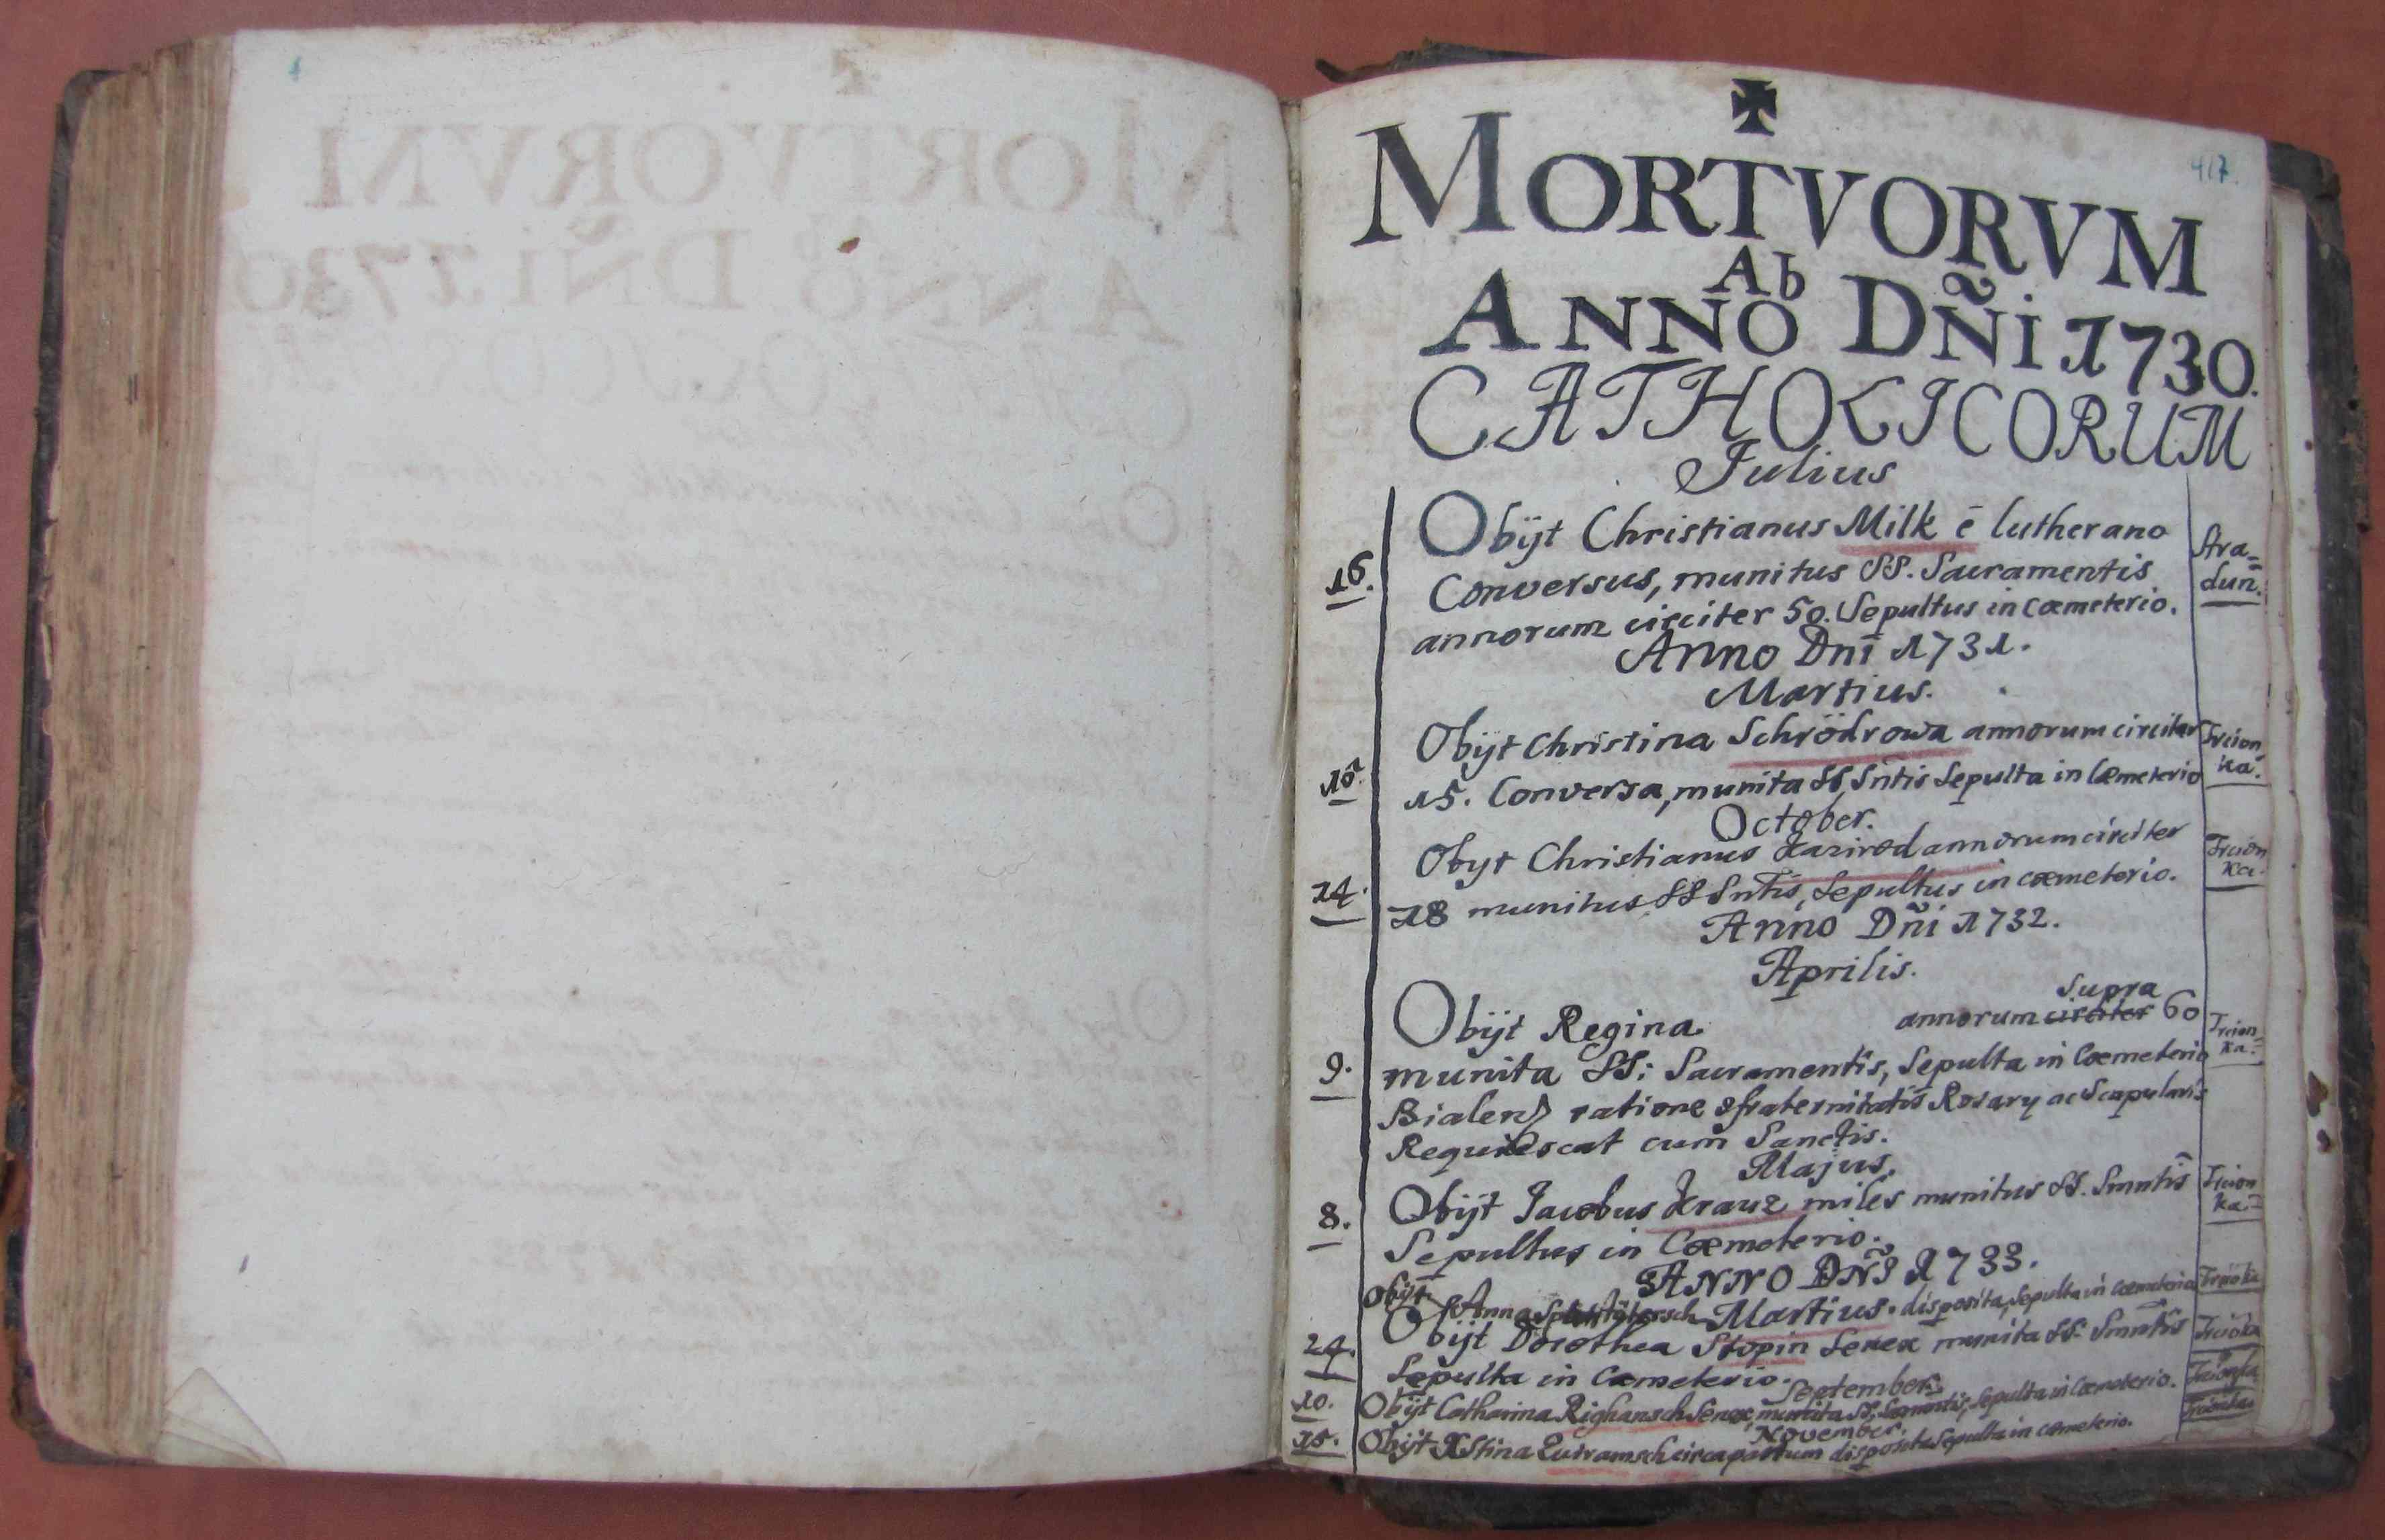 ✠
417.
MORTVORVM
Ab
ANNO DÑi 1730.
CATHOLICORUM
Julius
Obijt Christianus Milk ē lutherano
16. Conversus, munitus SS. Sacramentis
annorum circiter 50. Sepultus in cœmeterio.
Stra=
dun.
Anno Dnī 1731.
Martius.
Obijt Christina Schrödrowa annorum circiter
15. Conversa, munita SS Sntis Sepulta in Cœmeterio
Trcion
ka.
October.
Obyt Christianus annorum circiter
14. 18 munitus SS Sntis, Sepultus in cœmeterio.
Trcion
ka.
Anno Dñi 1732.
Aprilis.
Supra
Obijt Regina annorum circiter 60
9. munita SS: Sacramentis, Sepulta in Cœmeterio
ratione Rosary ac Scapularis
Requiescat cum Sanctis.
Trcion=
ka.
Majus.
8. Obijt Jacobus Krauz miles munitus SS. Smntis
Sepultus in Cœmeterio.
Trcion
ka.
ANNO DÑI 1733.
Obijt Anna disposita, Sepulta in Cœmeterio
Martius.
24. Obijt Dorothea Stopin Senex munita SS. Smntis
Sepulta in Cœmeterio.
September.
10. Obijt Catharina Righansch Senex, munita SS, Sepulta in Cœmeterio.
November.
15. Obijt Xstina circa partum disposita Sepulta in cœmeterio.